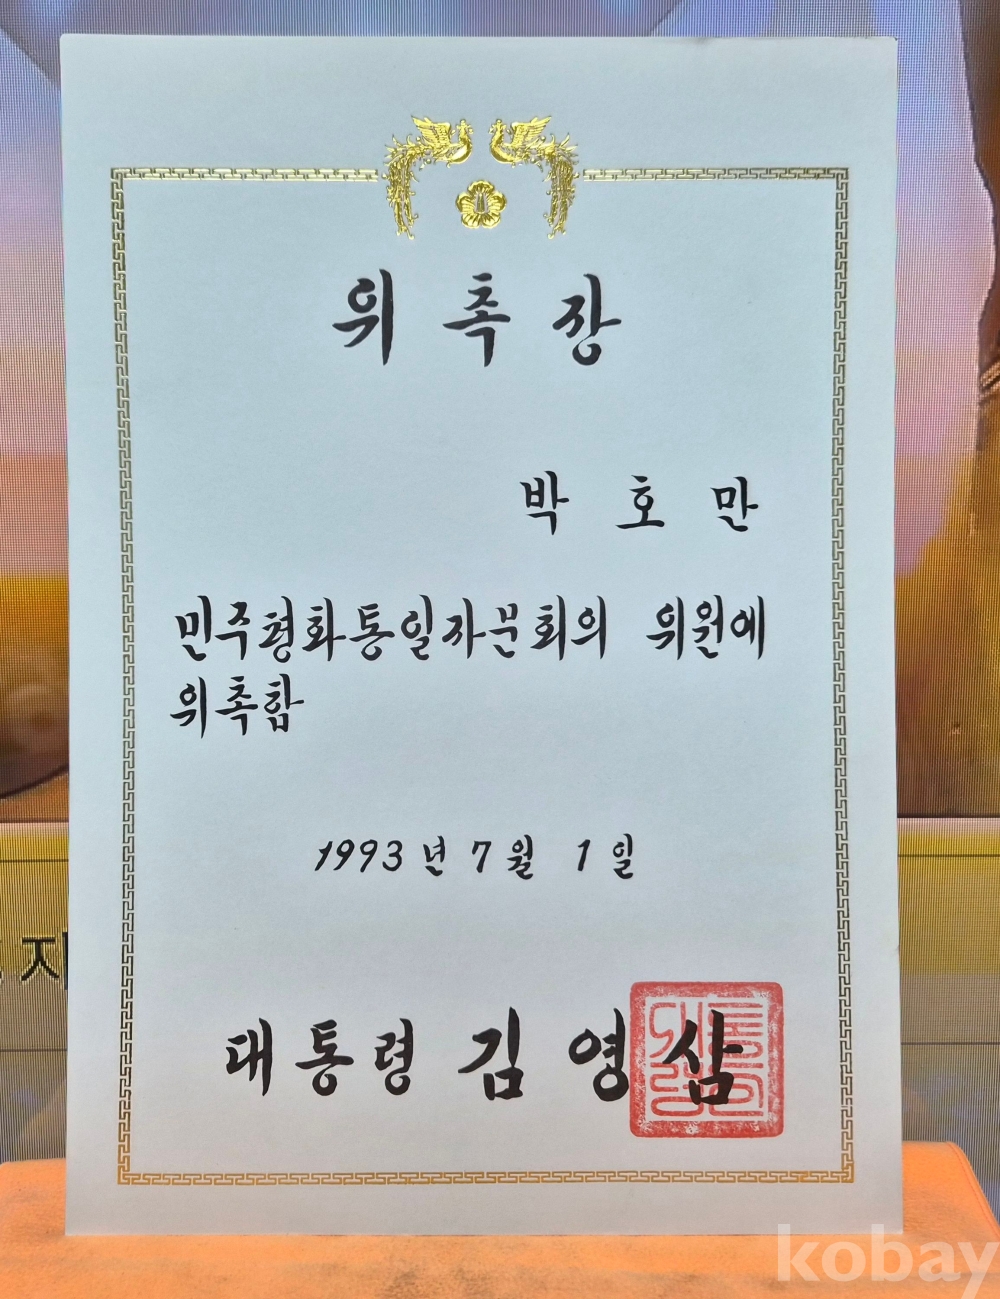 위촉장
박호만
민주평화통일자문회의 위원에
위촉함
1993년 7월 1일
대통령 김영삼
자
kobay